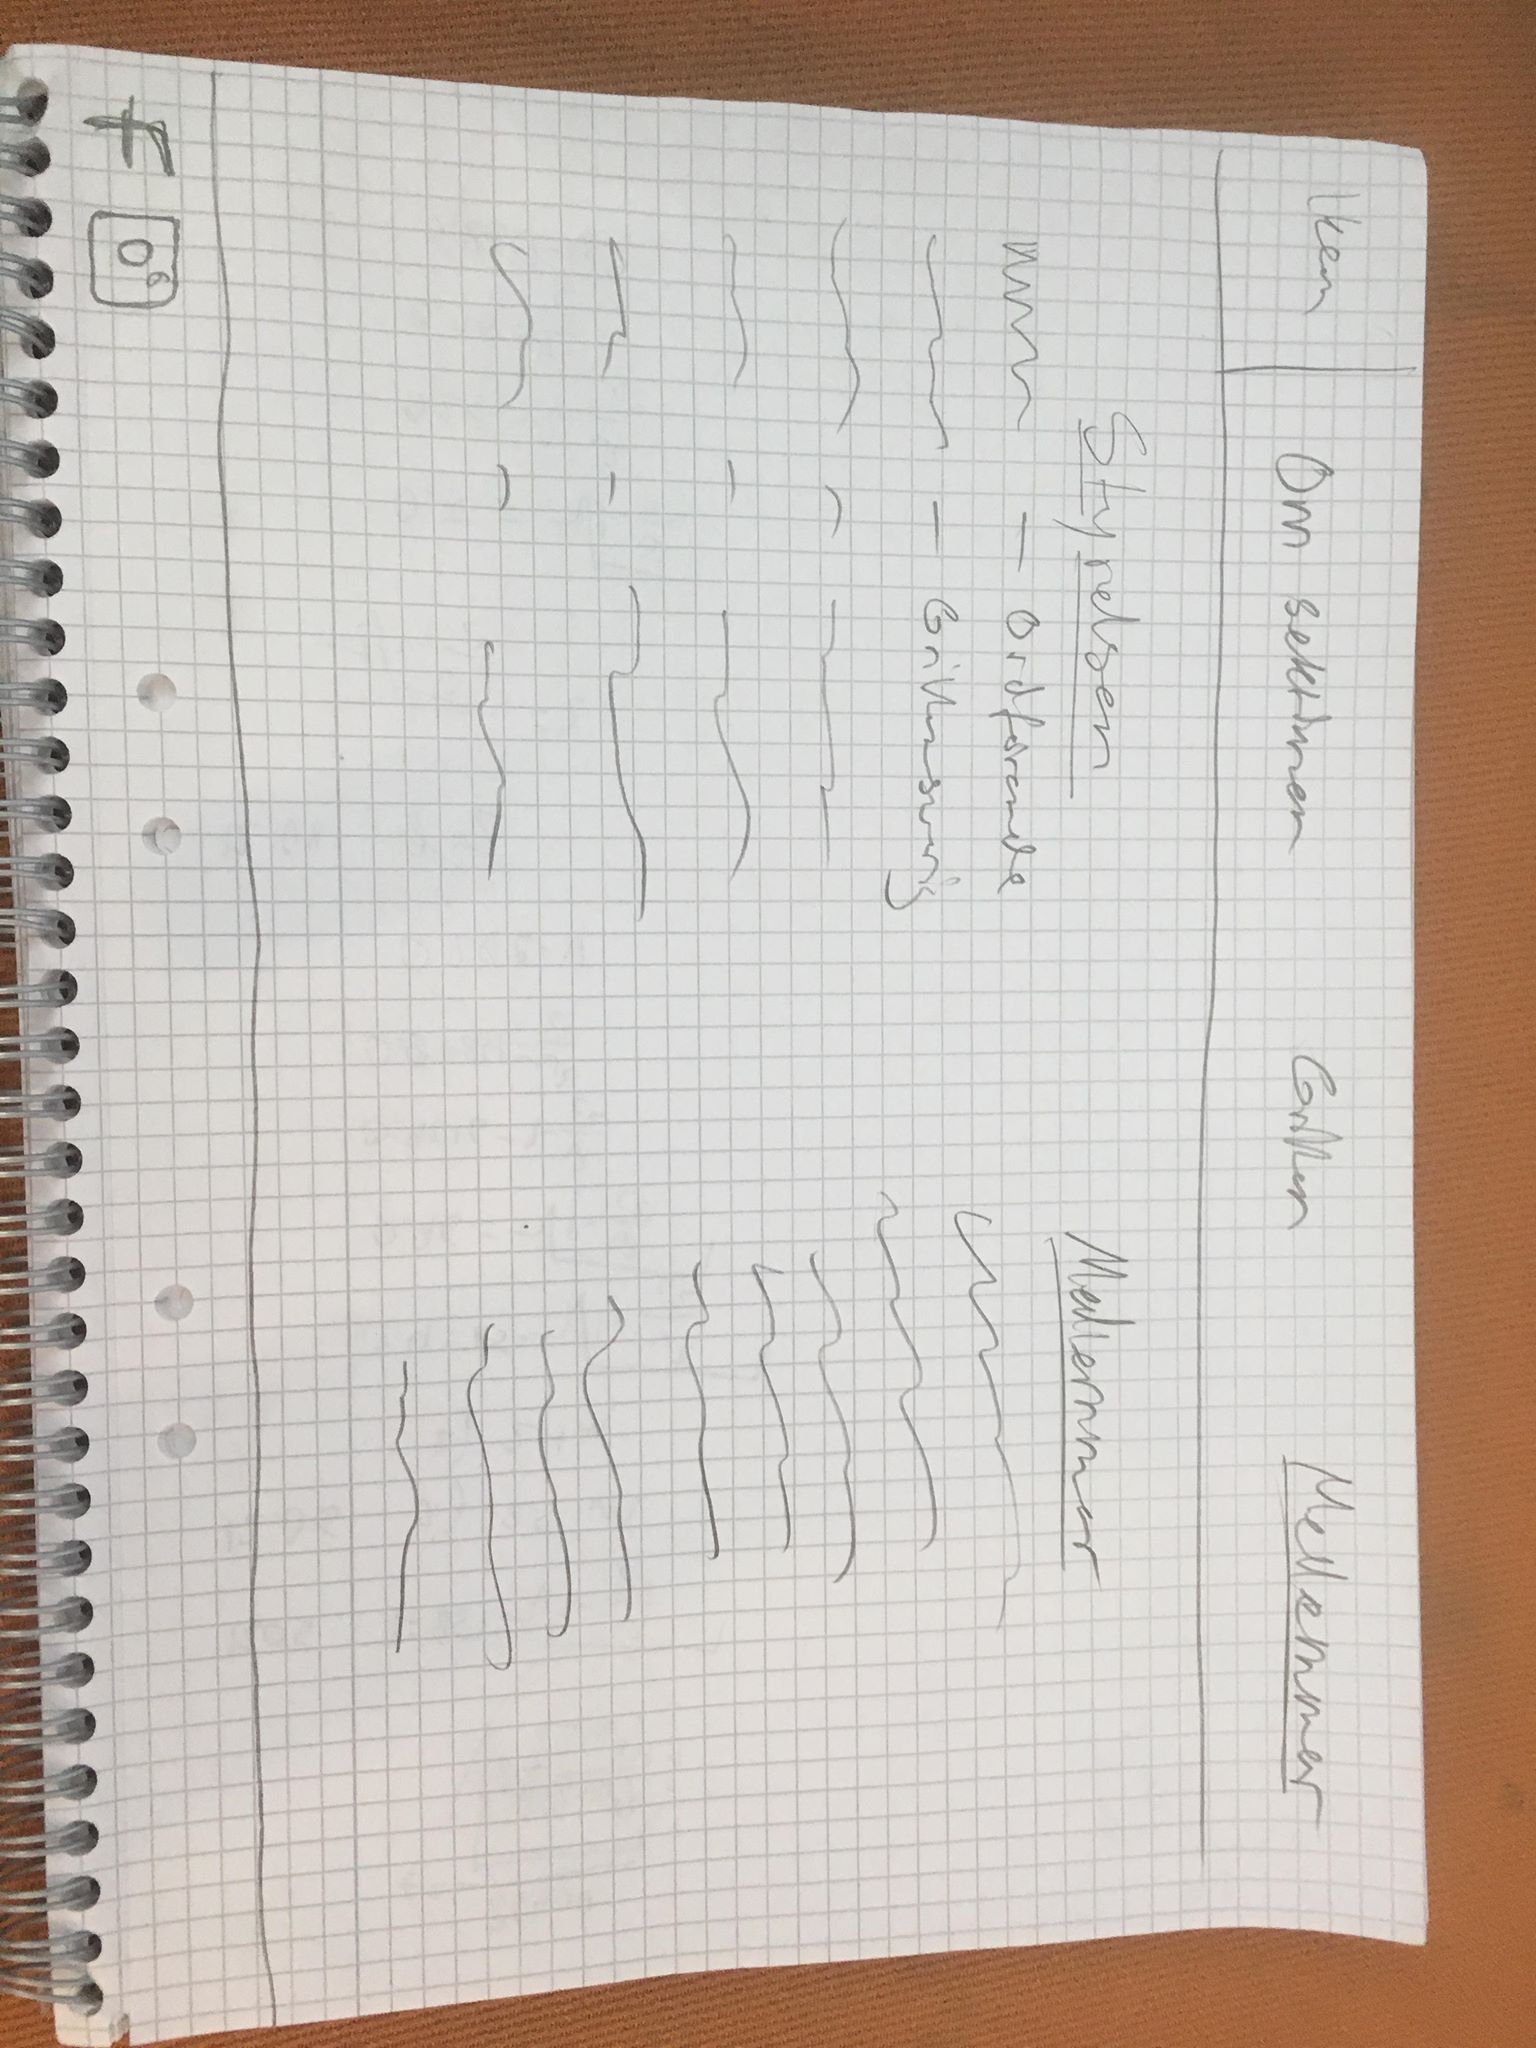 Ikon Om sektionen Grillen Medlemmar
Styrelsen
- Ordförande
- Grillansvarig
Medlemmar
F